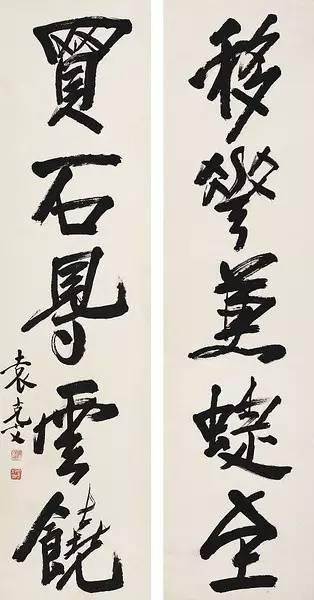 移花兼蜨至
買石得雲饒
袁克文